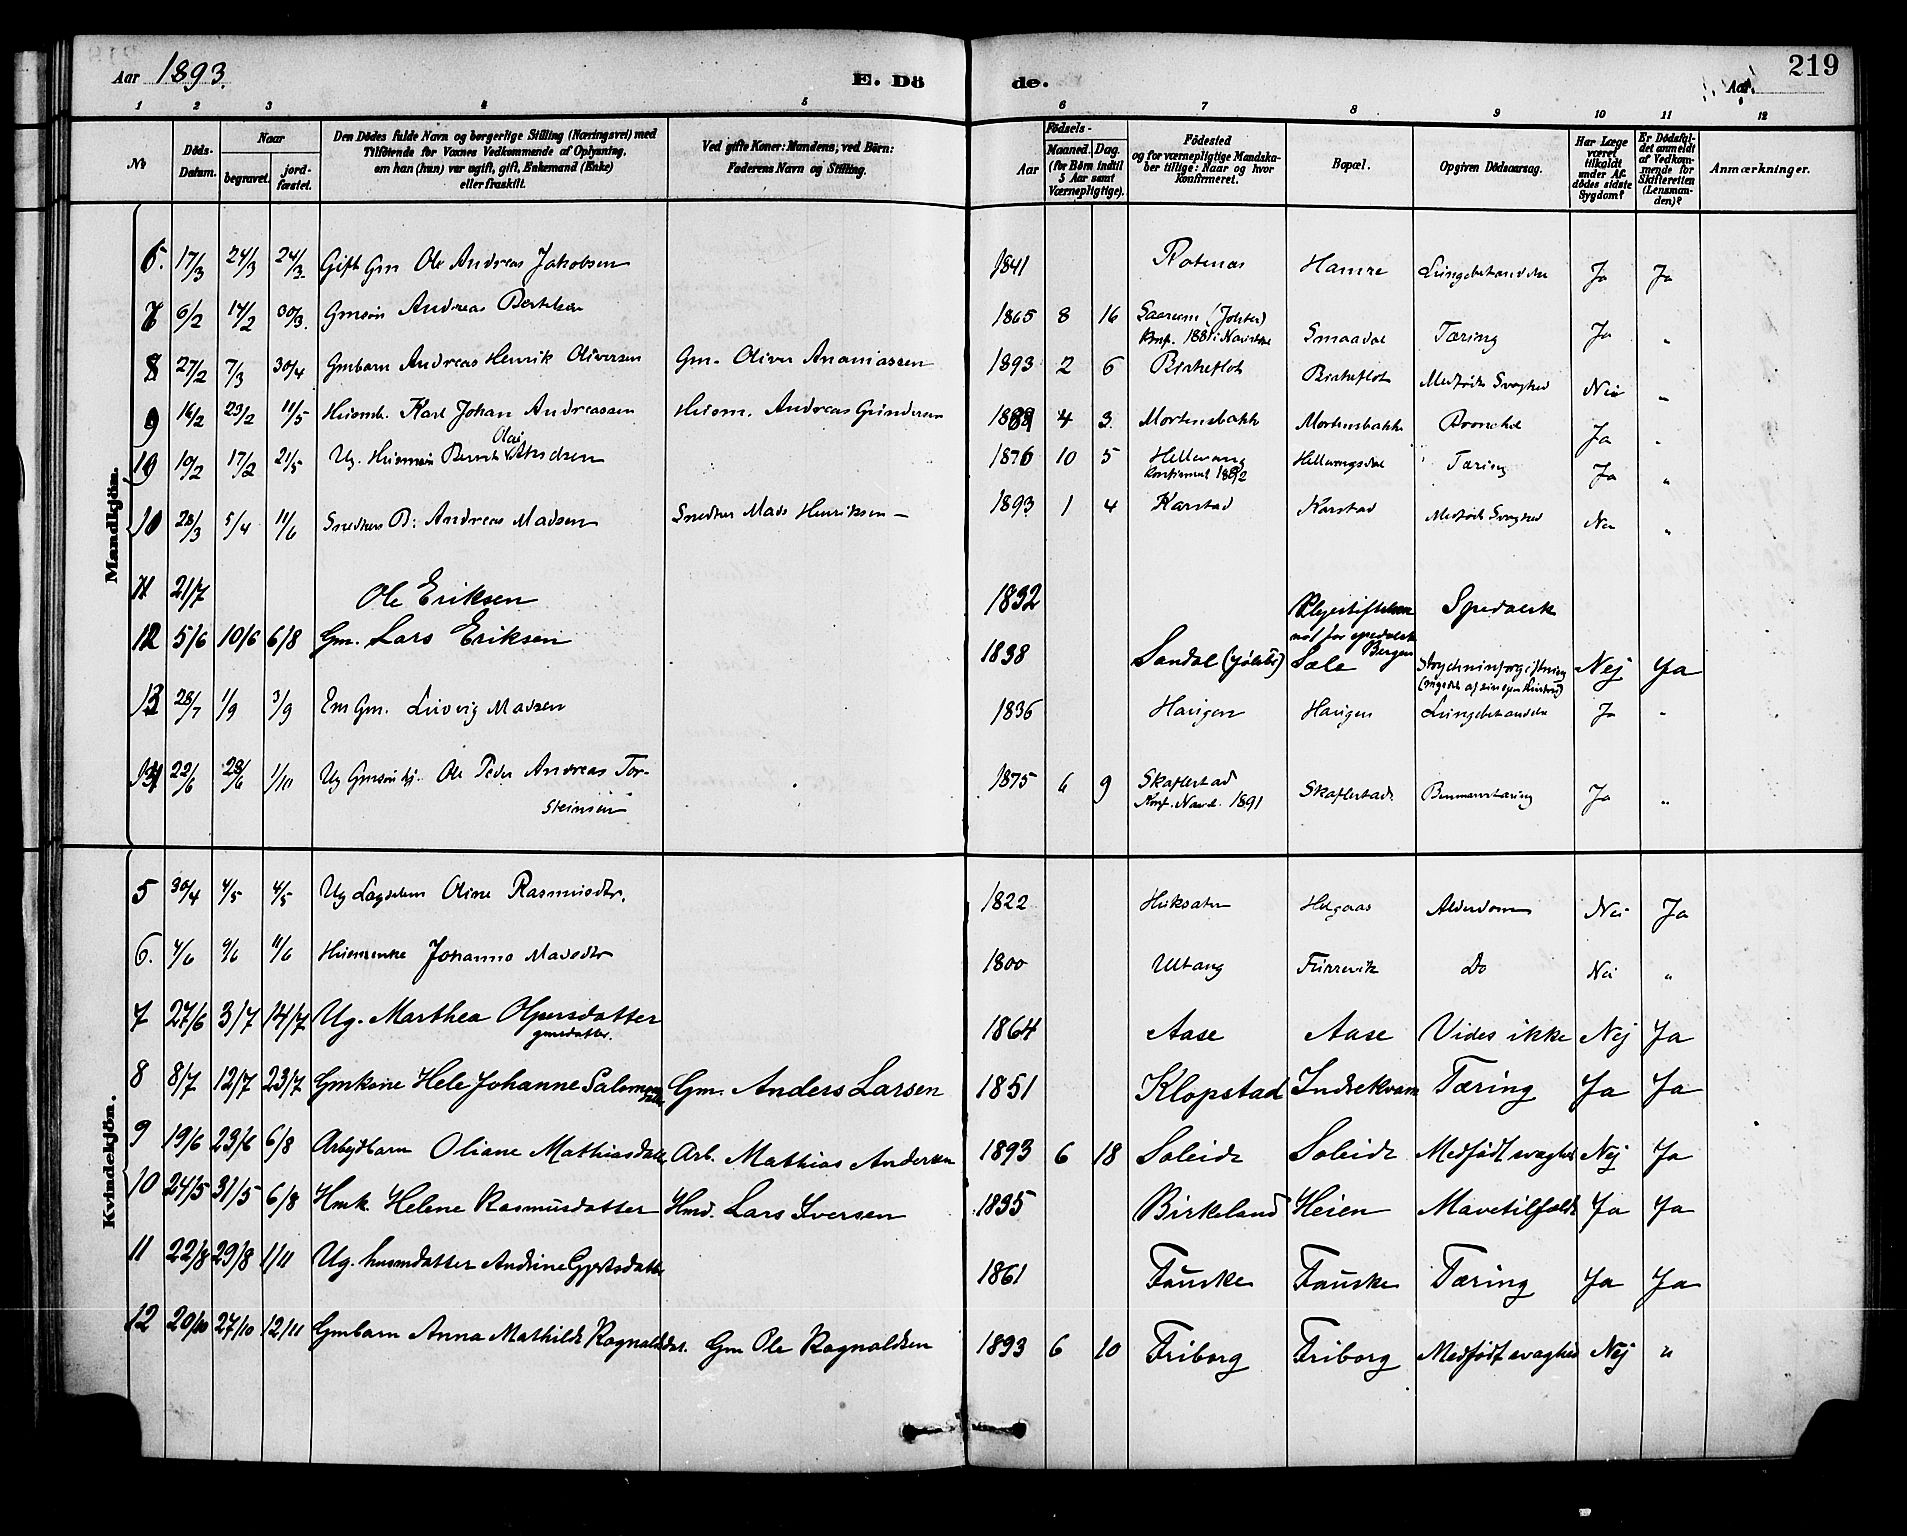 Aar 1893.
E. Döde.
Aar
219
1 2 3 4 5 6 7 8 9 10 11 12
No
Döds-Datum.
Naar
begravet.
jordfæstet.
Den Dödes fulde Navn og borgerlige Stilling (Næringsvei) med Tilföiende for Voxnes Vedkommende af Oplysning, om han (hun) var ugift, gift, Enkemand (Enke) eller fraskilt.
Ved gifte Koner: Mandens, ved Börn: Faderens Navn og Stilling.
Födsels-
Aar
Maaned. Dag.
(for Börn indtil 5 Aar samt Værnepligtige).
Födested og for værnepligtige Mandskaber tillige: Naar og hvor konfirmeret.
Bopæl.
Opgiven Dödsaarsag.
Har Læge været tilkaldt under Afdödes sidste Sygdom?
Er Dödsfaldet anmeldt af Vedkommende for Skifteretten (Lensmanden)?
Anmærkninger.
Mandkjön.
6. 17/3 24/3 24/3 Gift Gm Ole Andreas Jakobsen 1841 Hamre Lungebetændelse Ja Ja
7 6/2 14/2 30/3. Gmsøn Andreas Bertelsen 1865 8 16 (Jolster)
Konf. 1881 i Smaadal Tæring Ja "
8 27/2 7/3 30/4 Gmbarn Andreas Henrik Oliversen Gm. Oliver Ananiassen 1893 2 6 Birkeflot Birkeflot Medfødt Svaghed Nei "
9 16/2 23/2 11/5 Karl Johan Andreassen Andreas Gundersen 4 3 Mortensbakk Mortensbakk Ja "
10 10/2 17/2 21/5 Ug. Olai 1876 10 5 Tæring Ja "
Konfirmert 1892
10 28/3 5/4 11/6 Snedkers B: Andreas Madsen Snedker Mads Henriksen — 1893 1 4 Karstad Karstad Medfødt Svaghed Nei "
11 21/7 Ole Eriksen 1832 Plejestiftelsen Spedalsk
no 1 for spedalske Bergen
12 5/6 10/6 6/8 Gm. Lars Eriksen 1838 Sandal (Jølster) Sæle Strychninforgiftning Nej Ja
13 28/7 1/9 3/9 Em Gm. Ludvig Madsen 1836 Haugen Haugen Lungebetændelse Ja "
22/6 28/6 1/10 Ug Gmsøn Ole Peder Andreas Tor-
steinsen
1875 6 9 Skaflestad Skaflestad Ja "
Konf. 1891
Kvindekjön.
5 30/4 4/5 4/5 Ug Oline Rasmusdtr. 1822 Alderdom Nei Ja
6. 4/6 9/6 11/6 Johanne Madsdtr 1800 Furrevik Do Nei "
7 27/6 3/7 14/7 Ug. Marthea 1864 Aase Aase Vides ikke Nej Ja
gmsdatter.
8 8/7 12/7 23/7 Gmkone Hele Johanne Gm. Anders Larsen 1851 Klopstad Indrekvam Tæring Ja Ja
9 19/6 23/6 6/8 Arbejdbarn Oliane Mathiasdatter Arb. Mathias Andersen 1893 6 18 Soleide Soleide Medfødt svaghed Nej Ja
10 24/5 31/5 6/8 Hmk. Helene Rasmusdatter Hmd. Lars Iversen 1835 Birkeland Heien Mavetilfælde Ja Ja
11 22/8 29/8 1/11 Ug. husmdatter Andrine Gjertsdatter 1861 Fauske Fauske Tæring Ja Ja
12 20/10 27/10 12/11 Gmbarn Anna Mathilde Ragnaldsdat. Gm Ole Ragnaldsen 1893 6 10 Friborg Friborg Medfødt svaghed Nej "